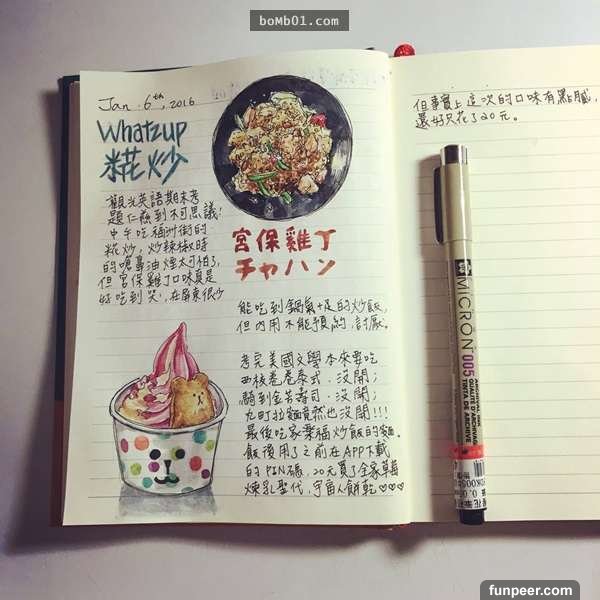 boMb01.com
Jan. 6th, 2016
Whatzup
糀炒
觀光英語期末考
題仁慈到不可思議!
中午吃福州街的
糀炒,炒辣椒時
的嗆鼻油煙太可怕了,
但宮保雞丁口味真是
好吃到哭,在屏東很少
宮保雞丁
チャハン
能吃到鍋氣十足的炒飯,
但內用不能預約,討厭。
考完美國文學本來要吃
西板卷卷泰式,沒開;
騎到金若壽司,沒開;
九町拉麵竟然也沒開!!!
最後吃家樂福炒飯的麵。
飯後用了之前在APP下載
的PIN碼,20元買了全家草莓
煉乳聖代,宇宙人餅乾♡♡♡
但事實上這次的口味有點膩,
還好只花了20元。
MICRON 005
ARCHIVAL INK
QUALITÉ D'ARCHIVAGE
TINTA DE ARCHIVE
funpeer.com